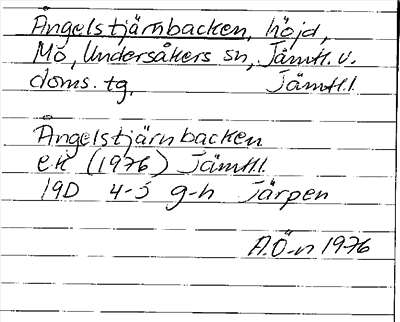 Ångelstjärnbacken, höjd,
Mo, Undersåkers sn, Jämtl. v.
doms. tg. Jämtl.l.
Ångelstjärnbacken
ek (1976) Jämtl.l.
19D 4-5 g-h Järpen
A.Ö-n 1976